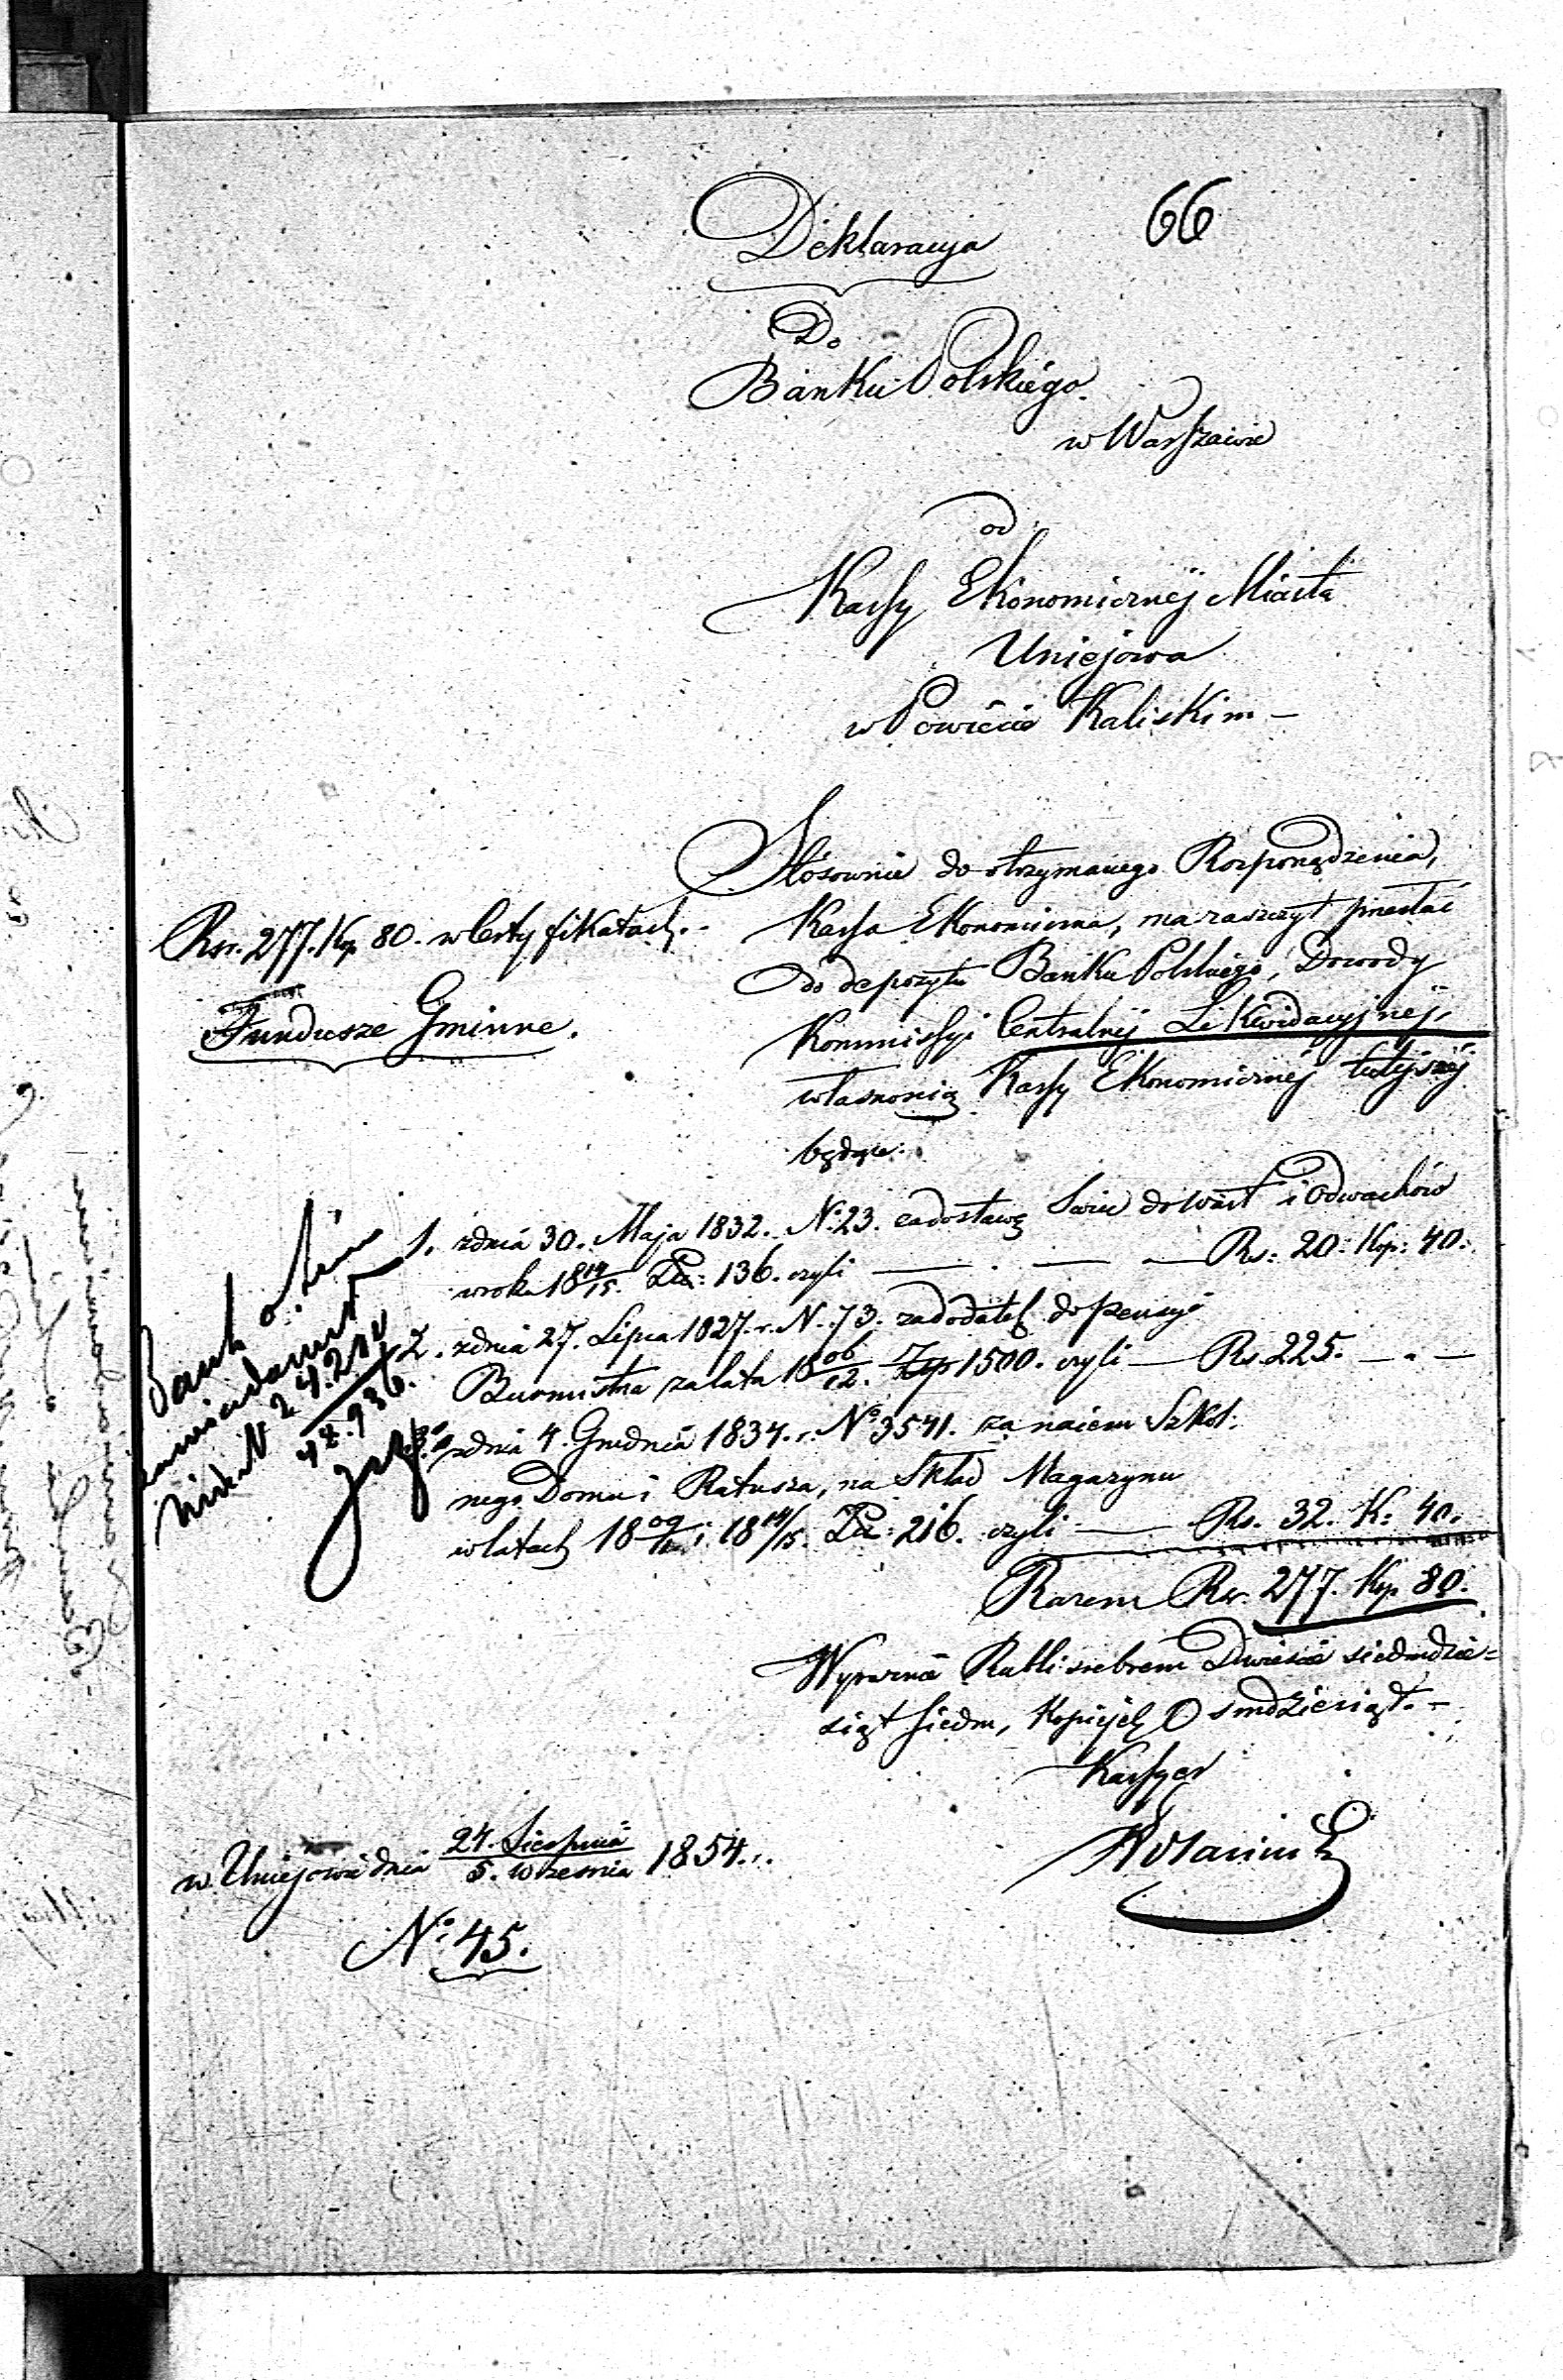 66
Deklaracyja
Do
Banku Polskiégo.
w Warszawie
od
Kassy Ekonomicznéj Miasta
Uniejowa
w Powiécie Kaliskim –
Stósownie do otrzymanego Rozporządzenia,
Rsr. 277. Kop. 80. w Certyfikatach. –
Kassa Ekonomiczna, ma zaszczyt przesłać
do depozytu Banku Polskiégo, Dowody
Fundusze Gminne.
Kommissyi Centralnéj Likwidacyjnéj,
własnością Kassy Ekonomicznéj tutéjszéj
będące.
1. z dnia 30. Maja 1832. No. 23. za dostawę Swiec do Wart i Odwachów
w roku 18 14/15. Zł: 136. czyli — . — — Rs: 20: Kop: 40:
2. z dnia 27. Lipca 1827. r. N. 73. za dodatek do pensyi
Burmistrza za lata 18 06/12. Złp 1500. czyli — Rs. 225. — " —
3. z dnia 4. Grudnia 1834. r. No 3541. za naiem Szkol:
nego Domu i Ratusza, na Skład Magazynu
w latach 18 09/ i 18 14/15. Zł: 216. czyli — Rs. 32. K: 40.
Razem Rsr. 277. Kop. 80.
Wyraźnie Rubli srebrem Dwieście siedmdzie=
siąt siedm, Kopiejek Osmdziesiąt. –
Kassyer
Bank
No 24.2
42.936.
w Uniejowie dnia 24. Sierpnia / 5. Września 1854. r.
No. 45.